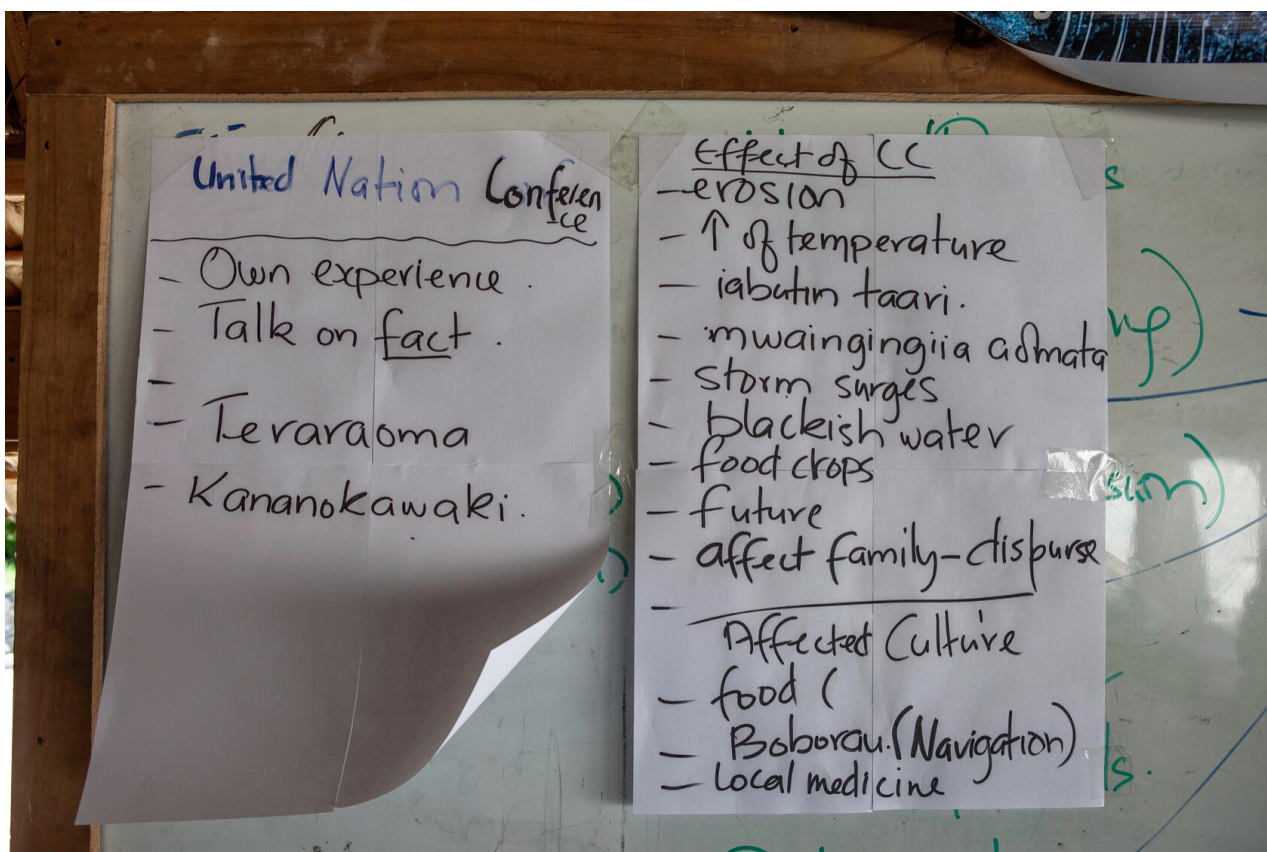 United Nation Conferen
-ce
- Own experience.
- Talk on fact.
-
- Teraraoma
- Kananokawaki.
Effect of CC
- erosion
- ↑ of temperature
- iabutin taari.
- mwaingingiia aomata
- storm surges
- blackish water
- food crops
- future
- affect family - dispurse
-
Affected Culture
- food (
- Boborau. (Navigation)
- local medicine